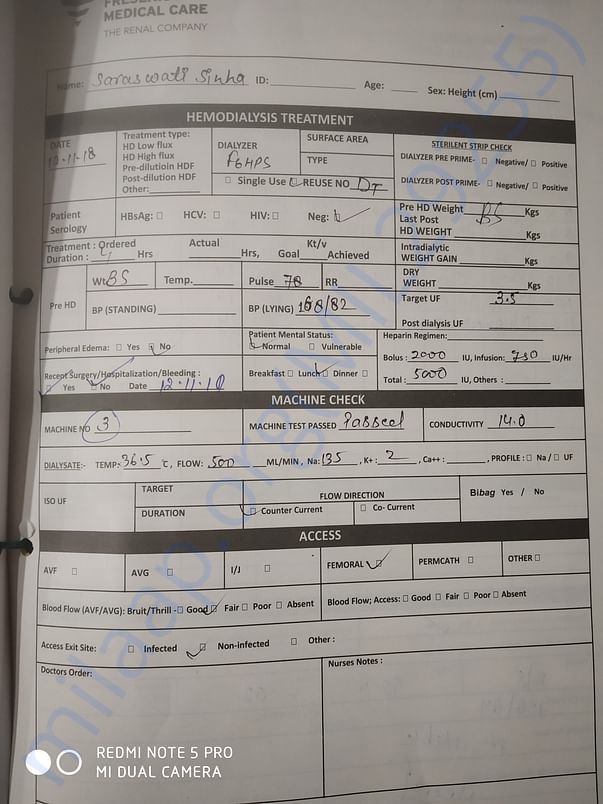 MEDICAL CARE
THE RENAL COMPANY
Name: Saraswati Sinha ID: Age: Sex: Height (cm)
HEMODIALYSIS TREATMENT
DATE
Treatment type:
HD Low flux
HD High flux
Pre-dilutioin HDF
Post-dilution HDF
Other:
DIALYZER
F6HPS
SURFACE AREA
TYPE
☐ Single Use ☑ REUSE NO DT
STERILENT STRIP CHECK
DIALYZER PRE PRIME- ☐ Negative/ ☐ Positive
DIALYZER POST PRIME- ☐ Negative/ ☐ Positive
Patient Serology
HBsAg: ☐ HCV: ☐ HIV: ☐ Neg: ☑
Pre HD Weight BS Kgs
Last Post
HD WEIGHT Kgs
Treatment : Ordered Actual Kt/v
Duration : 4 Hrs Hrs, Goal Achieved
Intradialytic
WEIGHT GAIN Kgs
Pre HD
Wt BS Temp. Pulse 78 RR
DRY
WEIGHT Kgs
BP (STANDING) BP (LYING) 168/82
Target UF 3.5
Post dialysis UF
Peripheral Edema: ☐ Yes ☑ No
Patient Mental Status:
☑ Normal ☐ Vulnerable
Heparin Regimen:
Bolus : 2000 IU, Infusion: 750 IU/Hr
Total : 5000 IU, Others :
Recent Surgery/Hospitalization/Bleeding :
Yes No Date 12.11.18
Breakfast ☐ Lunch ☑ Dinner ☐
MACHINE CHECK
MACHINE NO 3 MACHINE TEST PASSED Passed CONDUCTIVITY 14.0
DIALYSATE:- TEMP: 36.5 ℃, FLOW: 500 ML/MIN, Na: 135, K+: 2, Ca++: , PROFILE : ☐ Na / ☐ UF
ISO UF
TARGET
DURATION
FLOW DIRECTION
☑ Counter Current ☐ Co- Current
Bibag Yes / No
ACCESS
AVF ☐ AVG ☐ I/J ☐ FEMORAL ☑ PERMCATH ☐ OTHER ☐
Blood Flow (AVF/AVG): Bruit/Thrill -☐ Good ☑ Fair ☐ Poor ☐ Absent
Blood Flow; Access: ☐ Good ☐ Fair ☐ Poor ☐ Absent
Access Exit Site: ☐ Infected ☑ Non-infected ☐ Other :
Doctors Order:
Nurses Notes :
REDMI NOTE 5 PRO
MI DUAL CAMERA